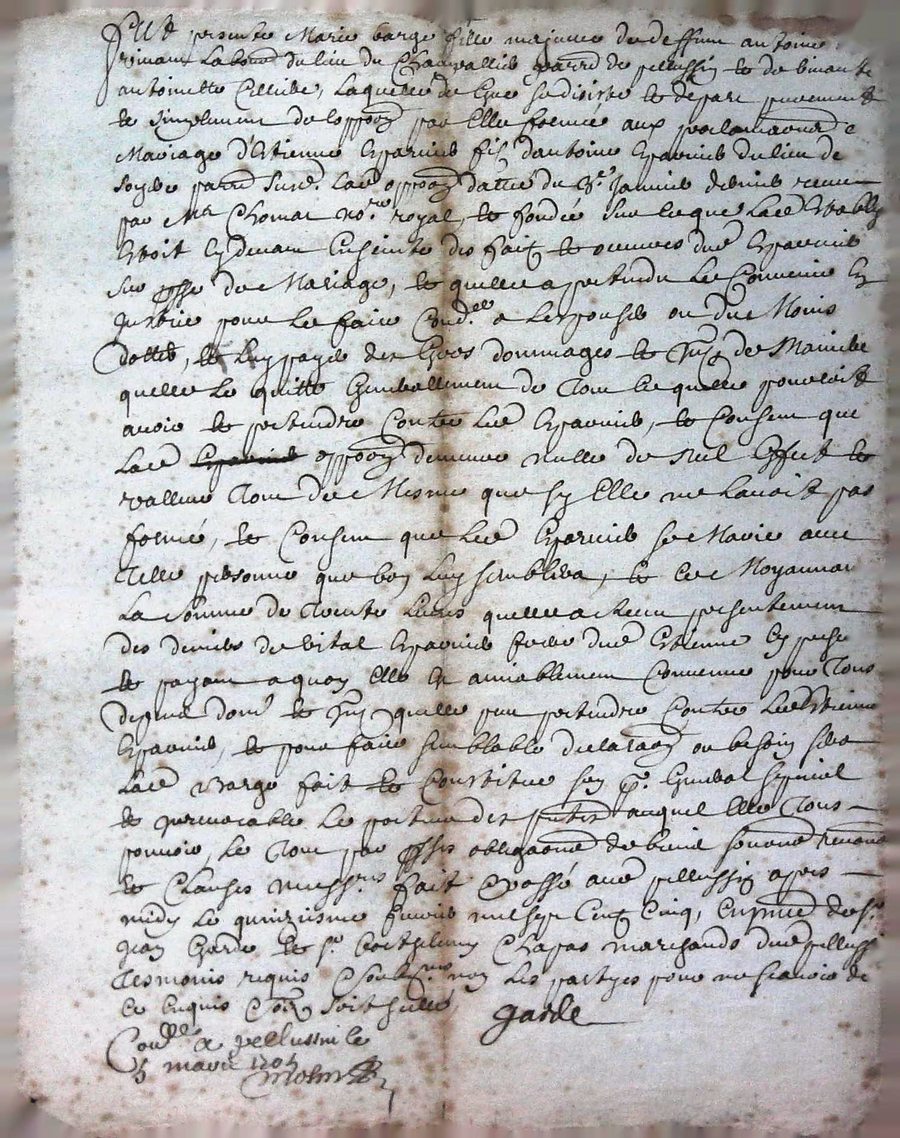 Fut presente Marie barge fille majeure de deffunt antoine
vivant du lieu de Chauvallieb parr.d de pellussin et de vivante
antoinette Cellibe, Laquelle de gre se desiste et depart purement
et simplement de loppo.on par elle formée aux proclamaons d
Mariage d'Etienne Eparvieb fils d'antoine Eparvieb du lieu de
parr.d lad.e oppo.on dattée du 3.e Janvieb dernieb receue
par M.e Chomat no.re royal, et fondée sur ce que lad.e barge
Estoit enceinte des faits et oeuvres dud. Eparvieb
sur p.sse de Mariage, et quelle a pretendu le Convenir En
Justice pour le faire Cond.er a Lespouseb ou du Moins
dotteb, et luy payeb des gros dommages et de Maniere
quelle le quitte generallement de Tout ce quelle pourroit
avoir et pretendre Contre led. Eparvieb, et Consent que
Lad.e oppo.on demeure nulle de nul Effect et
valleur Tout de Mesme que sy Elle ne Lavoit pas
formée, et Consent que Led. Eparvieb se Marie avec
Telle personne que bon Luy semblera, et ce Moyennant
La somme de Trente Livres quelle a receu presentement
des denieb de vital Eparvieb frere dud. Etienne
et payant a quoy elle est amiablement Convenue pour Tous
et quelle peut pretendre Contre Led. Etienne
Eparvieb, et pour faire semblable declaraon ou besoin sera
Lad.e Barge fait et Constitue son p.r general special
et irrevocable le porteur des p.ntes auquel elle donne
pouvoir, Le Tout par p.sses obligaons de biens
et Clauses fait et passé aud. pellussin apres
midy le quinzieme fevrieb mil sept Cent Cinq, en p.nce de s.r
Jean Garde et s.r barthelemy Chapas marchands dud. pellussin
Tesmoins requis non Les partyes pour ne scavoir de
ce enquis
garde
Con.llé a pellussin le
5 mars 1705